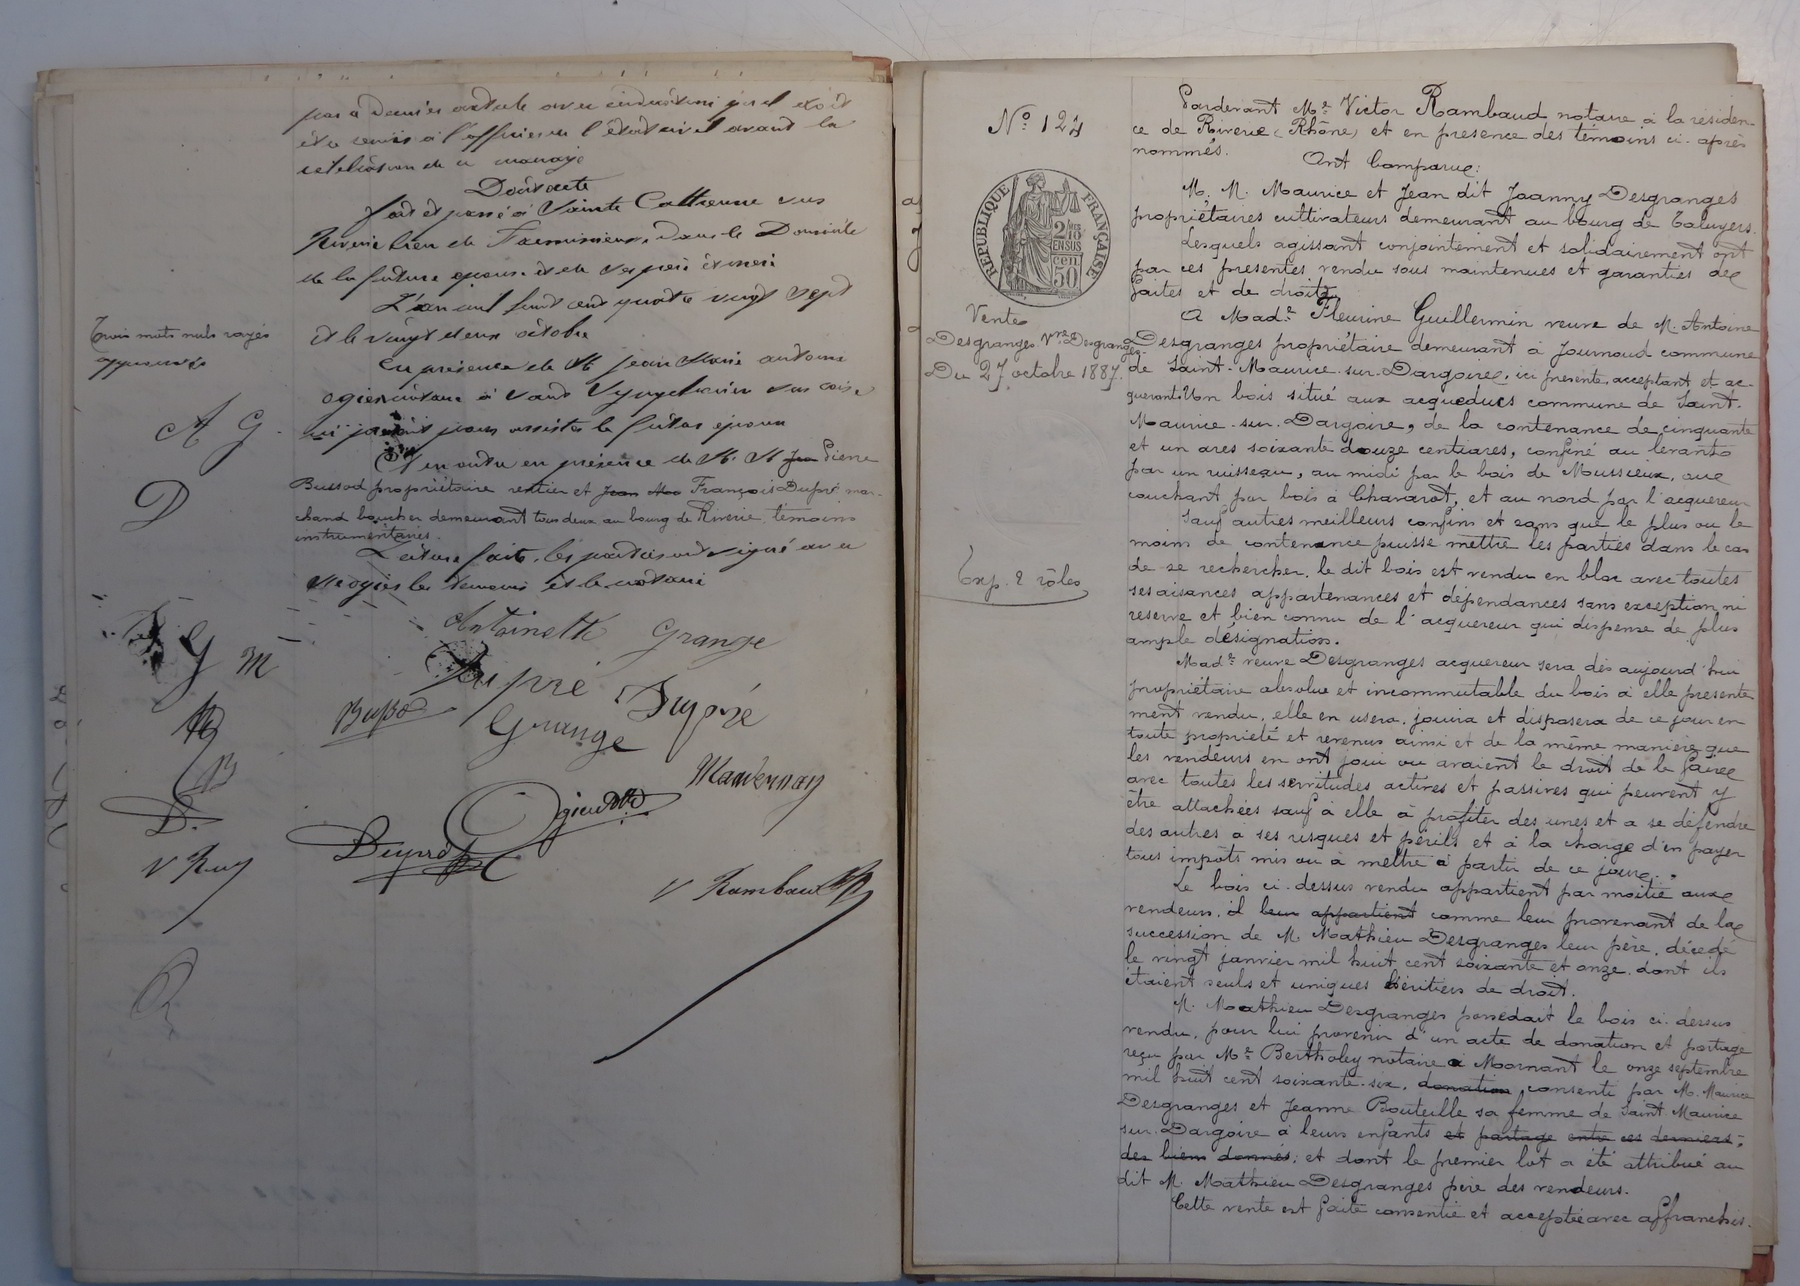 pas à dernier article avec indication qu'il doit
être remis à l'officier de l'état civil avant la
célébration du mariage
Dont acte
fait et passé à Sainte Catherine sus
Riverie lieu de dans le Domicile
de la future épouse et de ses père et mère
L'an mil huit cent quatre vingt sept
et le vingt deux octobre
Trois mots nuls rayés
approuvés
En présence de M Jean Marie antoine
ogier notaire à Saint Symphorien sur coise
ici présent pour assister le futur époux
Et en outre en présence de M. M Jean Pierre
Bussod propriétaire rentier et Jean Mar François Dupré mar-
chand boucher demeurant tous deux au bourg de Riverie, témoins
instrumentaires.
Lecture faite, les parties ont signé avec
Me ogier les témoins et le notaire
A G.
D
G M
B
D.
V Ray
Antoinette Grange
Dupré Dupré
Bussod
Grange
Ogier
Dupré
V Rambaud
No 124
RÉPUBLIQUE FRANÇAISE
2/10mes
EN SUS
50 cen
Vente
Desgranges Vve Desgranges
Du 27 octobre 1887.
Exp. 2 rôles
Pardevant Me Victor Rambaud, notaire à la résiden-
ce de Riverie (Rhône) et en présence des témoins ci-après
nommés.
Ont Comparu:
M. M. Maurice et Jean dit Joanny Desgranges
propriétaires cultivateurs demeurant au bourg de Taluyers.
Lesquels agissant conjointement et solidairement ont
par ces présentes vendu sous maintenues et garanties de
faites et de droit
A Made Fleurine Guillermin veuve de M. Antoine
Desgranges propriétaire demeurant à Journoud commune
de Saint-Maurice-sur-Dargoire, ici présente, acceptant et ac-
quérant: Un bois situé aux acqueducs commune de Saint-
Maurice-sur-Dargoire, de la contenance de cinquante
et un ares soixante douze centiares, confiné au levant
par un ruisseau, au midi par le bois de Mussieux, au
couchant par bois à Chavarot, et au nord par l'acquéreur
Sauf autres meilleurs confins et sans que le plus ou le
moins de contenance puisse mettre les parties dans le cas
de se rechercher. le dit bois est vendu en bloc avec toutes
ses aisances appartenances et dépendances sans exception ni
réserve et bien connu de l'acquéreur qui dispense de plus
ample désignation.
Made veuve Desgranges acquéreur sera dès aujourd'hui
propriétaire absolue et incommutable du bois à elle présente
ment vendu, elle en usera, jouira et disposera de ce jour en
toute propriété et revenus ainsi et de la même manière que
les vendeurs en ont joui ou avaient le droit de le faire
avec toutes les servitudes actives et passives qui peuvent y
être attachées sauf à elle à profiter des unes et a se défendre
des autres à ses risques et périls et à la charge d'en payer
tous impôts mis ou à mettre à partir de ce jour.
Le bois ci-dessus vendu appartient par moitié aux
vendeurs, il leur appartient comme leur provenant de la
succession de M. Mathieu Desgranges leur père, décédé
le vingt janvier mil huit cent soixante et onze, dont ils
étaient seuls et uniques héritiers de droit.
M. Mathieu Desgranges possédait le bois ci-dessus
vendu, pour lui provenir d'un acte de donation et partage
reçu par Me Bertholey notaire à Mornant le onze septembre
mil huit cent soixante-six, donation consenti par M. Maurice
Desgranges et Jeanne Bouteille sa femme de Saint Maurice
sur-Dargoire à leurs enfants et partage entre ces derniers,
des biens donnés; et dont le premier lot a été attribué au
dit M. Mathieu Desgranges père des vendeurs.
Cette vente est faite consentie et acceptée avec affranchis-